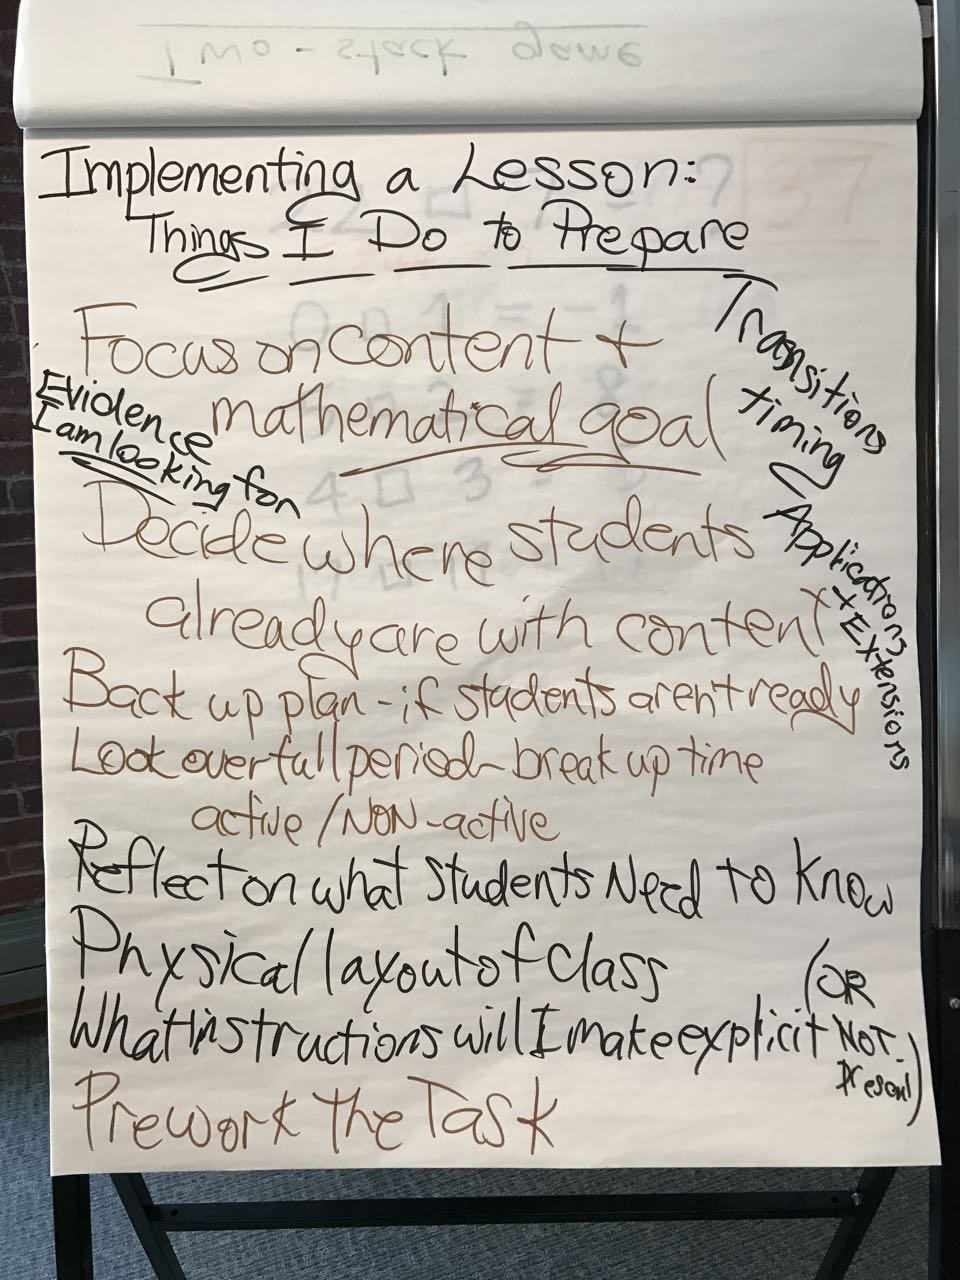 Two-stack game
Implementing a Lesson:
Things I Do to Prepare
Focus on content +
mathematical goal
Evidence
I am looking for
Transitions
timing
Applications
+ Extensions
Decide where students
already are with content
Back up plan - if students aren't ready
Look over full period - break up time
active / NON-active
Reflect on what students Need to know
Physical layout of class
What instructions will I make explicit
(OR
NOT
present)
Prework the Task